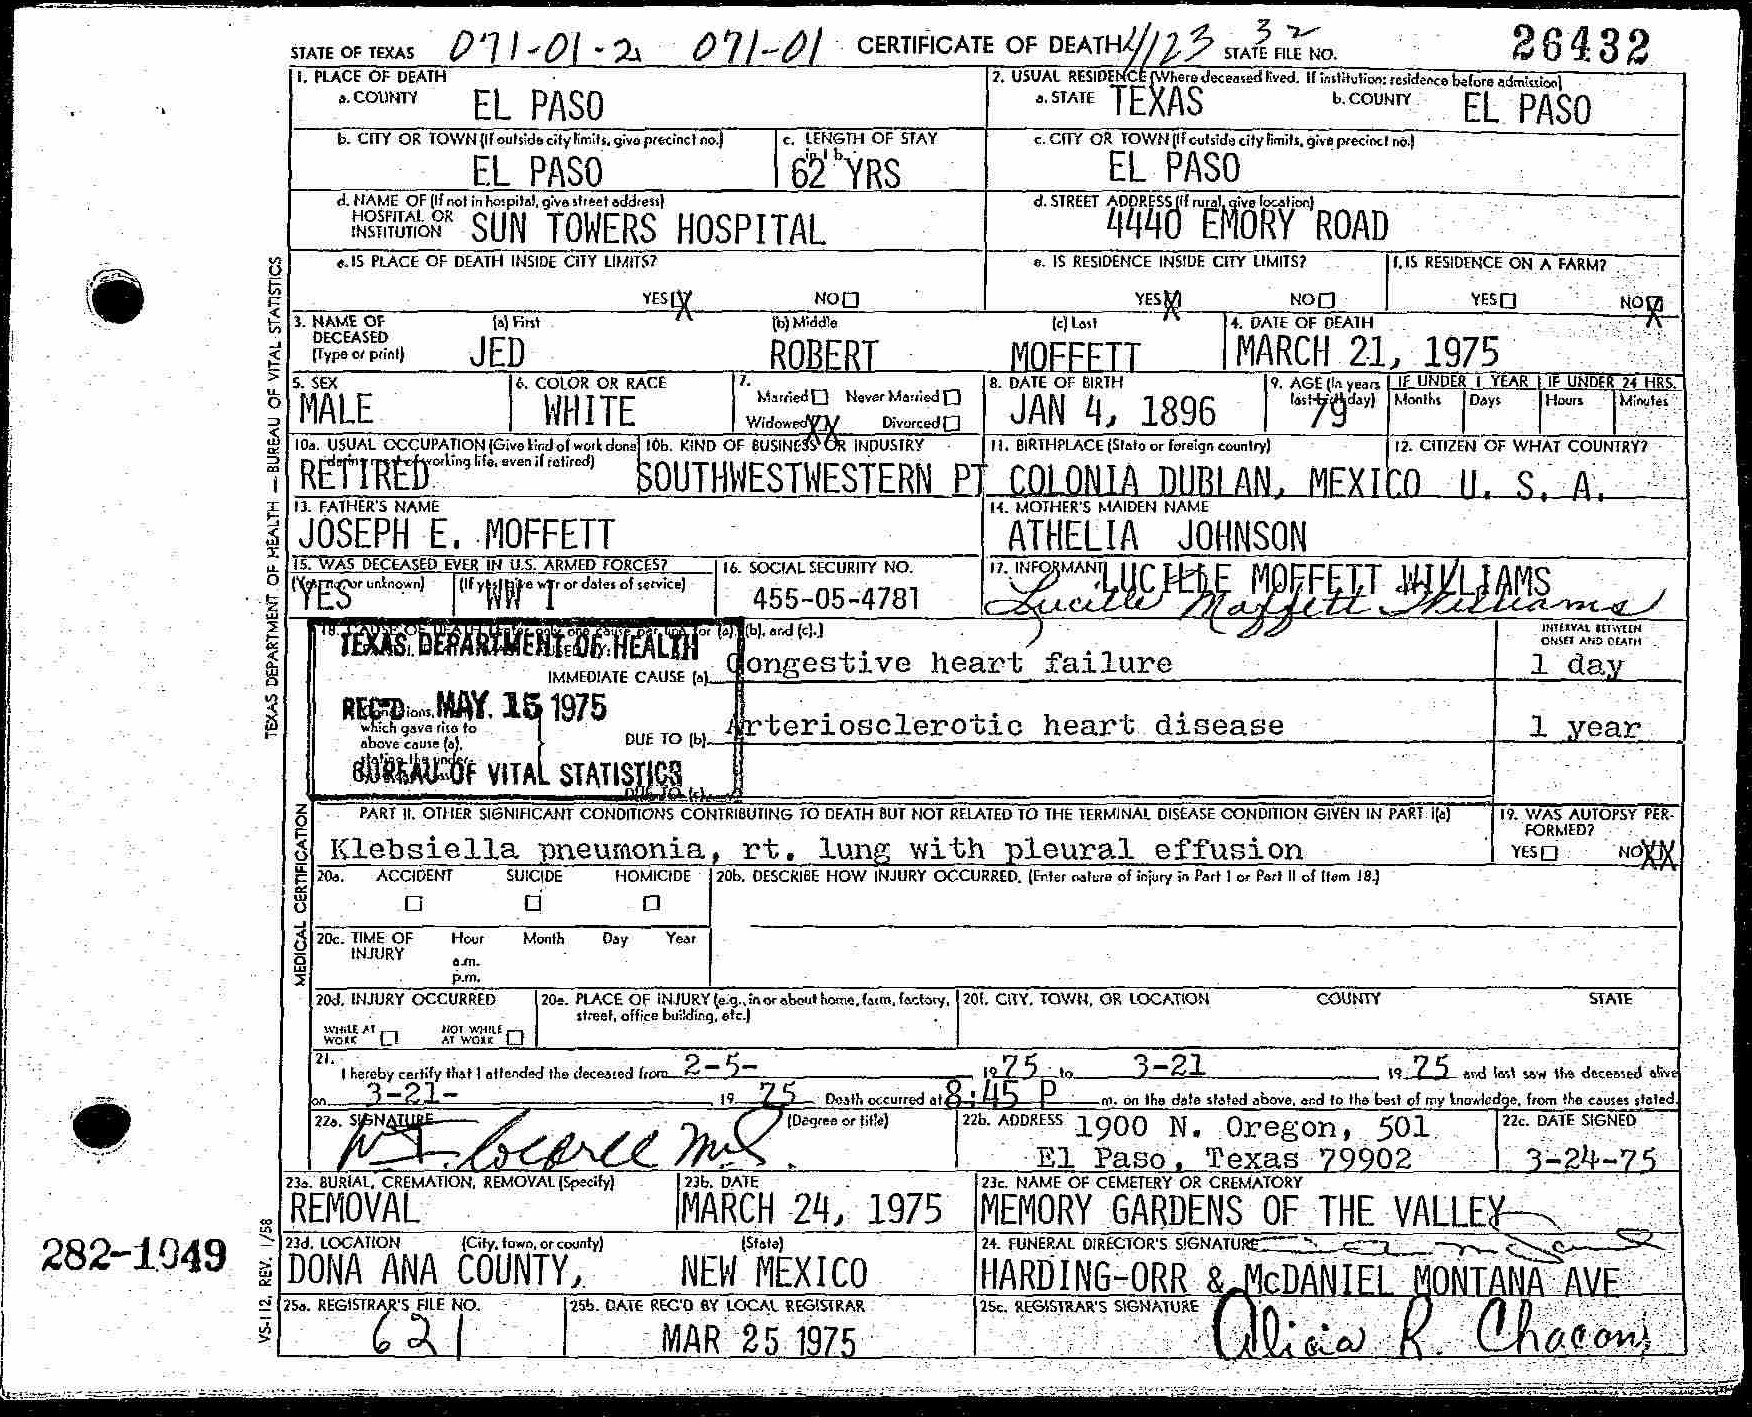 STATE OF TEXAS 071-01-2 071-01 CERTIFICATE OF DEATH 4123 32 STATE FILE NO. 26432
1. PLACE OF DEATH
a. COUNTY EL PASO
2. USUAL RESIDENCE (Where deceased lived. If institution: residence before admission)
a. STATE TEXAS b. COUNTY EL PASO
b. CITY OR TOWN (If outside city limits, give precinct no.) EL PASO
c. LENGTH OF STAY in 1 b. 62 YRS
c. CITY OR TOWN (If outside city limits, give precinct no.) EL PASO
d. NAME OF (If not in hospital, give street address) HOSPITAL OR INSTITUTION SUN TOWERS HOSPITAL
d. STREET ADDRESS (If rural, give location) 4440 EMORY ROAD
e. IS PLACE OF DEATH INSIDE CITY LIMITS?
YES X NO
e. IS RESIDENCE INSIDE CITY LIMITS?
YES X NO
f. IS RESIDENCE ON A FARM?
YES NO X
3. NAME OF DECEASED (Type or print)
(a) First JED (b) Middle ROBERT (c) Last MOFFETT
4. DATE OF DEATH MARCH 21, 1975
5. SEX MALE
6. COLOR OR RACE WHITE
7. Married Never Married
Widowed XX Divorced
8. DATE OF BIRTH JAN 4, 1896
9. AGE (In years last birthday) 79
IF UNDER 1 YEAR Months Days
IF UNDER 24 HRS. Hours Minutes
10a. USUAL OCCUPATION (Give kind of work done working life, even if retired) RETIRED
10b. KIND OF BUSINESS OR INDUSTRY SOUTHWESTWESTERN PT
11. BIRTHPLACE (State or foreign country) COLONIA DUBLAN, MEXICO
12. CITIZEN OF WHAT COUNTRY? U. S. A.
13. FATHER'S NAME JOSEPH E. MOFFETT
14. MOTHER'S MAIDEN NAME ATHELIA JOHNSON
15. WAS DECEASED EVER IN U.S. ARMED FORCES?
(Yes, no, or unknown) YES (If yes, give war or dates of service) WW I
16. SOCIAL SECURITY NO. 455-05-4781
17. INFORMANT LUCILLE MOFFETT WILLIAMS
Lucille Moffett Williams
TEXAS DEPARTMENT OF HEALTH
REC'D MAY 15 1975
BUREAU OF VITAL STATISTICS
18. CAUSE OF DEATH (Enter only one cause per line for (a), (b), and (c).)
INTERVAL BETWEEN ONSET AND DEATH
IMMEDIATE CAUSE (a) Congestive heart failure 1 day
which gave rise to above cause (a),
DUE TO (b) Arteriosclerotic heart disease 1 year
DUE TO (c)
PART II. OTHER SIGNIFICANT CONDITIONS CONTRIBUTING TO DEATH BUT NOT RELATED TO THE TERMINAL DISEASE CONDITION GIVEN IN PART I(a)
Klebsiella pneumonia, rt. lung with pleural effusion
19. WAS AUTOPSY PERFORMED?
YES NO XX
20a. ACCIDENT SUICIDE HOMICIDE
20b. DESCRIBE HOW INJURY OCCURRED. (Enter nature of injury in Part I or Part II of Item 18.)
20c. TIME OF INJURY Hour Month Day Year
a.m.
p.m.
20d. INJURY OCCURRED
WHILE AT WORK NOT WHILE AT WORK
20e. PLACE OF INJURY (e.g., in or about home, farm, factory, street, office building, etc.)
20f. CITY, TOWN, OR LOCATION COUNTY STATE
21. I hereby certify that I attended the deceased from 2-5- 1975 to 3-21 1975 and last saw the deceased alive
on 3-21- 1975 Death occurred at 8:45 P m. on the date stated above, and to the best of my knowledge, from the causes stated.
22a. SIGNATURE (Degree or title)
22b. ADDRESS 1900 N. Oregon, 501
El Paso, Texas 79902
22c. DATE SIGNED 3-24-75
23a. BURIAL, CREMATION, REMOVAL (Specify) REMOVAL
23b. DATE MARCH 24, 1975
23c. NAME OF CEMETERY OR CREMATORY MEMORY GARDENS OF THE VALLEY
23d. LOCATION (City, town, or county) (State)
DONA ANA COUNTY, NEW MEXICO
24. FUNERAL DIRECTOR'S SIGNATURE
HARDING-ORR & McDANIEL MONTANA AVE
25a. REGISTRAR'S FILE NO. 621
25b. DATE REC'D BY LOCAL REGISTRAR MAR 25 1975
25c. REGISTRAR'S SIGNATURE Alicia R. Chacon
TEXAS DEPARTMENT OF HEALTH — BUREAU OF VITAL STATISTICS
MEDICAL CERTIFICATION
VS-112, REV. 1/58
282-1949